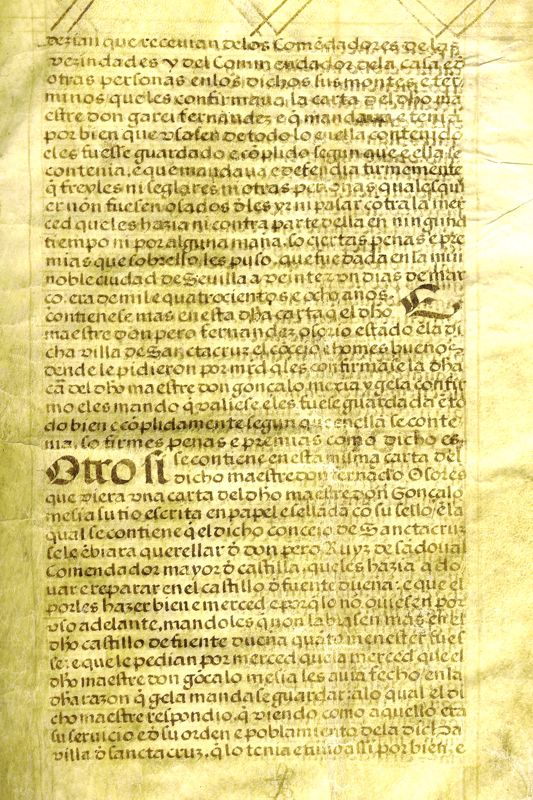 dezian que recevian delos Comẽdadores de las
vezindades y del Commendador dela casa e d̃
otras personas enlos dichos sus montes e ter
minos que les confirmaua la carta del dho ma
estre don garci fernandez e q̃ mandaua e tenia
por bien que vsasen de todo lo enella contenido
e les fuesse guardado e cõplido segun que ẽ ella se
contenia, e que mandaua e defendia firmemente
q̃ freyles ni seglares ni otras personas qualesqui
er nõn fuesen osados d̃ les yr ni pasar cõtra la mer
ced que les hazia ni contra parte della en ningund
tiempo ni por alguna mana. so ciertas penas e pre
mias que sobrello les puso. que fue dada en la mui
noble ciudad de Sevilla a veinte z vn dias de mar
co. era de mile quatrocientos e ocho años. E
contienese mas en esta dha carta q̃ el dho
maestre don pero fernandez osorio estãdo ẽla di
cha villa de Sanctacruz el cõcejo e homes buenos
dende le pidieron por mrd q̃ les confirmase la dha
cã del dho maestre don goncalo mexia y gela confir
mo e les mando q̃ valiese e les fuese guardada ẽ to
do bien e cõplidamente segun que enella se conte
nia. so firmes penas e premias como dicho es.
Otro si se contiene en esta misma carta del
dicho maestre don fernando Osores
que viera vna carta del dho maestre don Goncalo
mesia su tio escrita en papel e sellada cõ su sello, ẽ la
qual se contiene q̃ el dicho concejo de Sanctacruz
se le ẽbiara querellar d̃ don pero Ruyz de sãdoual
Comendador mayor d̃ castilla, que les hazia q̃ lo
uar e reparar en el castillo d̃ fuente dueña: e que el
por les hazer bien e merced e porq̃ lo nõ ouiesen por
vso adelante, mando les que non labrasen mas en el
dho castillo de fuente dueña quãto menester fues
se: e que le pedian por merced que la merced que el
dho maestre don gõcalo mesia les auia fecho en la
dha razon q̃ gela mandase guardar: a lo qual el di
cho maestre respondio. q̃ viendo como aquello era
su servicio e d̃ su orden e poblamiento dela dicha
villa d̃ sancta cruz, q̃ lo tenia e tuuo assi por bien, e